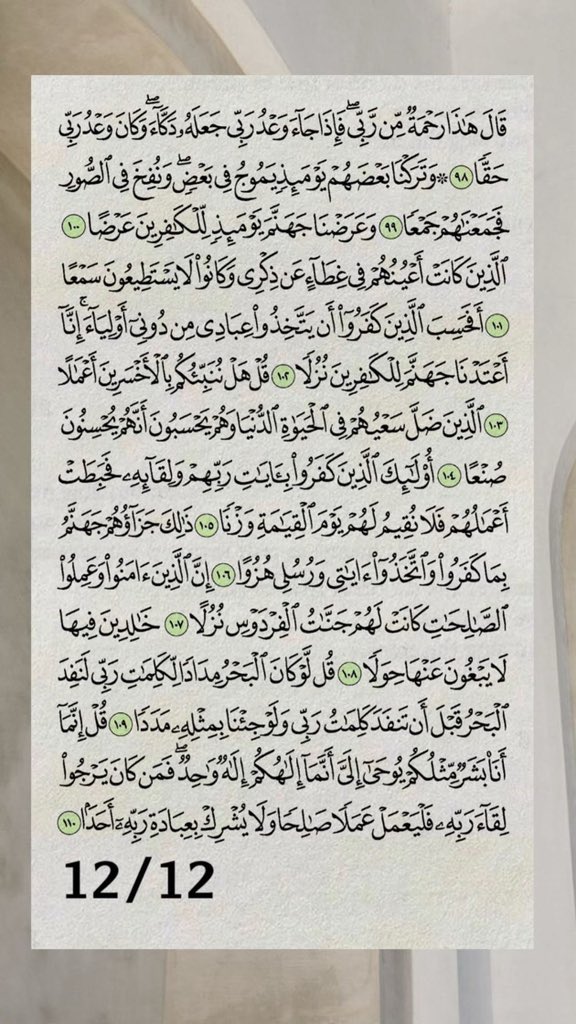 قَالَ هَٰذَا رَحْمَةٌ مِّن رَّبِّي ۖ فَإِذَا جَآءَ وَعْدُ رَبِّي جَعَلَهُۥ دَكَّآءَ ۖ وَكَانَ وَعْدُ رَبِّي
حَقًّا ٩٨ ۞ وَتَرَكْنَا بَعْضَهُمْ يَوْمَئِذٍ يَمُوجُ فِي بَعْضٍ ۖ وَنُفِخَ فِي ٱلصُّورِ
فَجَمَعْنَٰهُمْ جَمْعًا ٩٩ وَعَرَضْنَا جَهَنَّمَ يَوْمَئِذٍ لِّلْكَٰفِرِينَ عَرْضًا ١٠٠
ٱلَّذِينَ كَانَتْ أَعْيُنُهُمْ فِي غِطَآءٍ عَن ذِكْرِي وَكَانُوا۟ لَا يَسْتَطِيعُونَ سَمْعًا
١٠١ أَفَحَسِبَ ٱلَّذِينَ كَفَرُوٓا۟ أَن يَتَّخِذُوا۟ عِبَادِي مِن دُونِيٓ أَوْلِيَآءَ ۚ إِنَّآ
أَعْتَدْنَا جَهَنَّمَ لِلْكَٰفِرِينَ نُزُلًا ١٠٢ قُلْ هَلْ نُنَبِّئُكُم بِٱلْأَخْسَرِينَ أَعْمَٰلًا
١٠٣ ٱلَّذِينَ ضَلَّ سَعْيُهُمْ فِي ٱلْحَيَوٰةِ ٱلدُّنْيَا وَهُمْ يَحْسَبُونَ أَنَّهُمْ يُحْسِنُونَ
صُنْعًا ١٠٤ أُو۟لَٰٓئِكَ ٱلَّذِينَ كَفَرُوا۟ بِـَٔايَٰتِ رَبِّهِمْ وَلِقَآئِهِۦ فَحَبِطَتْ
أَعْمَٰلُهُمْ فَلَا نُقِيمُ لَهُمْ يَوْمَ ٱلْقِيَٰمَةِ وَزْنًا ١٠٥ ذَٰلِكَ جَزَآؤُهُمْ جَهَنَّمُ
بِمَا كَفَرُوا۟ وَٱتَّخَذُوٓا۟ ءَايَٰتِي وَرُسُلِي هُزُوًا ١٠٦ إِنَّ ٱلَّذِينَ ءَامَنُوا۟ وَعَمِلُوا۟
ٱلصَّٰلِحَٰتِ كَانَتْ لَهُمْ جَنَّٰتُ ٱلْفِرْدَوْسِ نُزُلًا ١٠٧ خَٰلِدِينَ فِيهَا
لَا يَبْغُونَ عَنْهَا حِوَلًا ١٠٨ قُل لَّوْ كَانَ ٱلْبَحْرُ مِدَادًا لِّكَلِمَٰتِ رَبِّي لَنَفِدَ
ٱلْبَحْرُ قَبْلَ أَن تَنفَدَ كَلِمَٰتُ رَبِّي وَلَوْ جِئْنَا بِمِثْلِهِۦ مَدَدًا ١٠٩ قُلْ إِنَّمَآ
أَنَا۠ بَشَرٌ مِّثْلُكُمْ يُوحَىٰٓ إِلَيَّ أَنَّمَآ إِلَٰهُكُمْ إِلَٰهٌ وَٰحِدٌ ۖ فَمَن كَانَ يَرْجُوا۟
لِقَآءَ رَبِّهِۦ فَلْيَعْمَلْ عَمَلًا صَٰلِحًا وَلَا يُشْرِكْ بِعِبَادَةِ رَبِّهِۦٓ أَحَدًۢا ١١٠
12/12